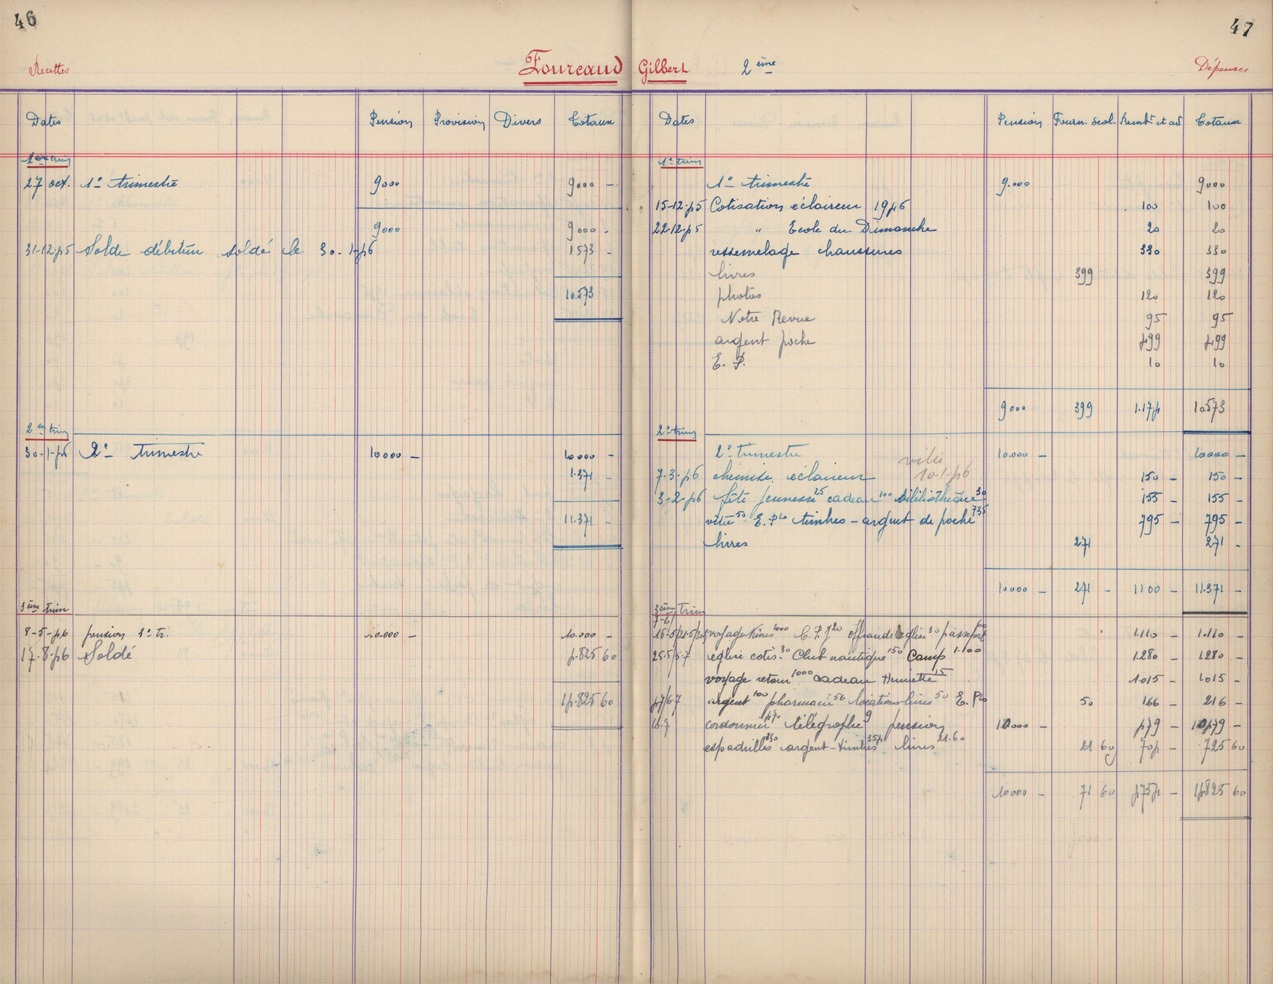 46
47
Recettes
Fourcaud Gilbert 2ème
Dépenses
Dates Pension Provision Divers Totaux
Dates Pension Fourn. scol. Rembt et ad Totaux
1er trim
27 oct. 1° trimestre 9000 9000 -
9000 9000 -
31-12-45 Solde débiteur soldé le 30-1-46 1573 -
10.573
2ème trim
30-1-46 2° trimestre 10000 - 10000 -
1.371 -
11.371 -
3ème trim
8-5-46 pension 3° tr. 10.000 - 10.000 -
17-8-46 Soldé 4.825 60
14.825 60
1° trim
1° trimestre 9.000 9000
15-12-45 Cotisation éclaireur 1946 100 100
22-12-45 " Ecole du Dimanche 20 20
ressemelage chaussures 330 330
livres 399 399
photos 120 120
Notre Revue 95 95
argent poche 499 499
E. P. 10 10
9000 399 1.174 10573
2° trim
2° trimestre 10.000 - 10000 -
7-3-46 chemise éclaireur 150 - 150 -
3-2-46 fête jeunesse 25 cadeau 100 bibliothèque 30 155 - 155 -
50 E.P. 10 timbres - argent de poche 735 795 - 795 -
livres 271 271 -
10000 - 271 - 1100 - 11.371 -
3ème trim
voyage 1000 offrande église 30 1.110 - 1.110 -
église cotis. 30 Club nautique 150 Camp 1.100 1280 - 1280 -
voyage retour 1000 cadeau 15 1015 - 1015 -
argent 100 pharmacie 56 locations livres 50 E. P. 10 50 166 - 216 -
cordonnier 470 télégraphe 9 pension 10000 - 479 - 10479 -
espadrilles 350 argent-timbres 354 livres 21.60 21 60 704 - 725 60
10000 - 71 60 4754 - 14825 60